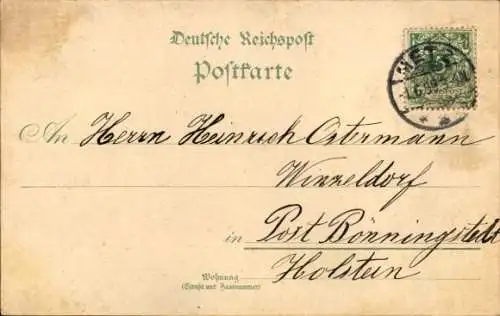 Deutsche Reichspost
Postkarte
METZ
An Herrn Heinrich Ostermann
Winzeldorf
in Post Bönningstedt
Holstein
Wohnung
(Straße und Hausnummer)